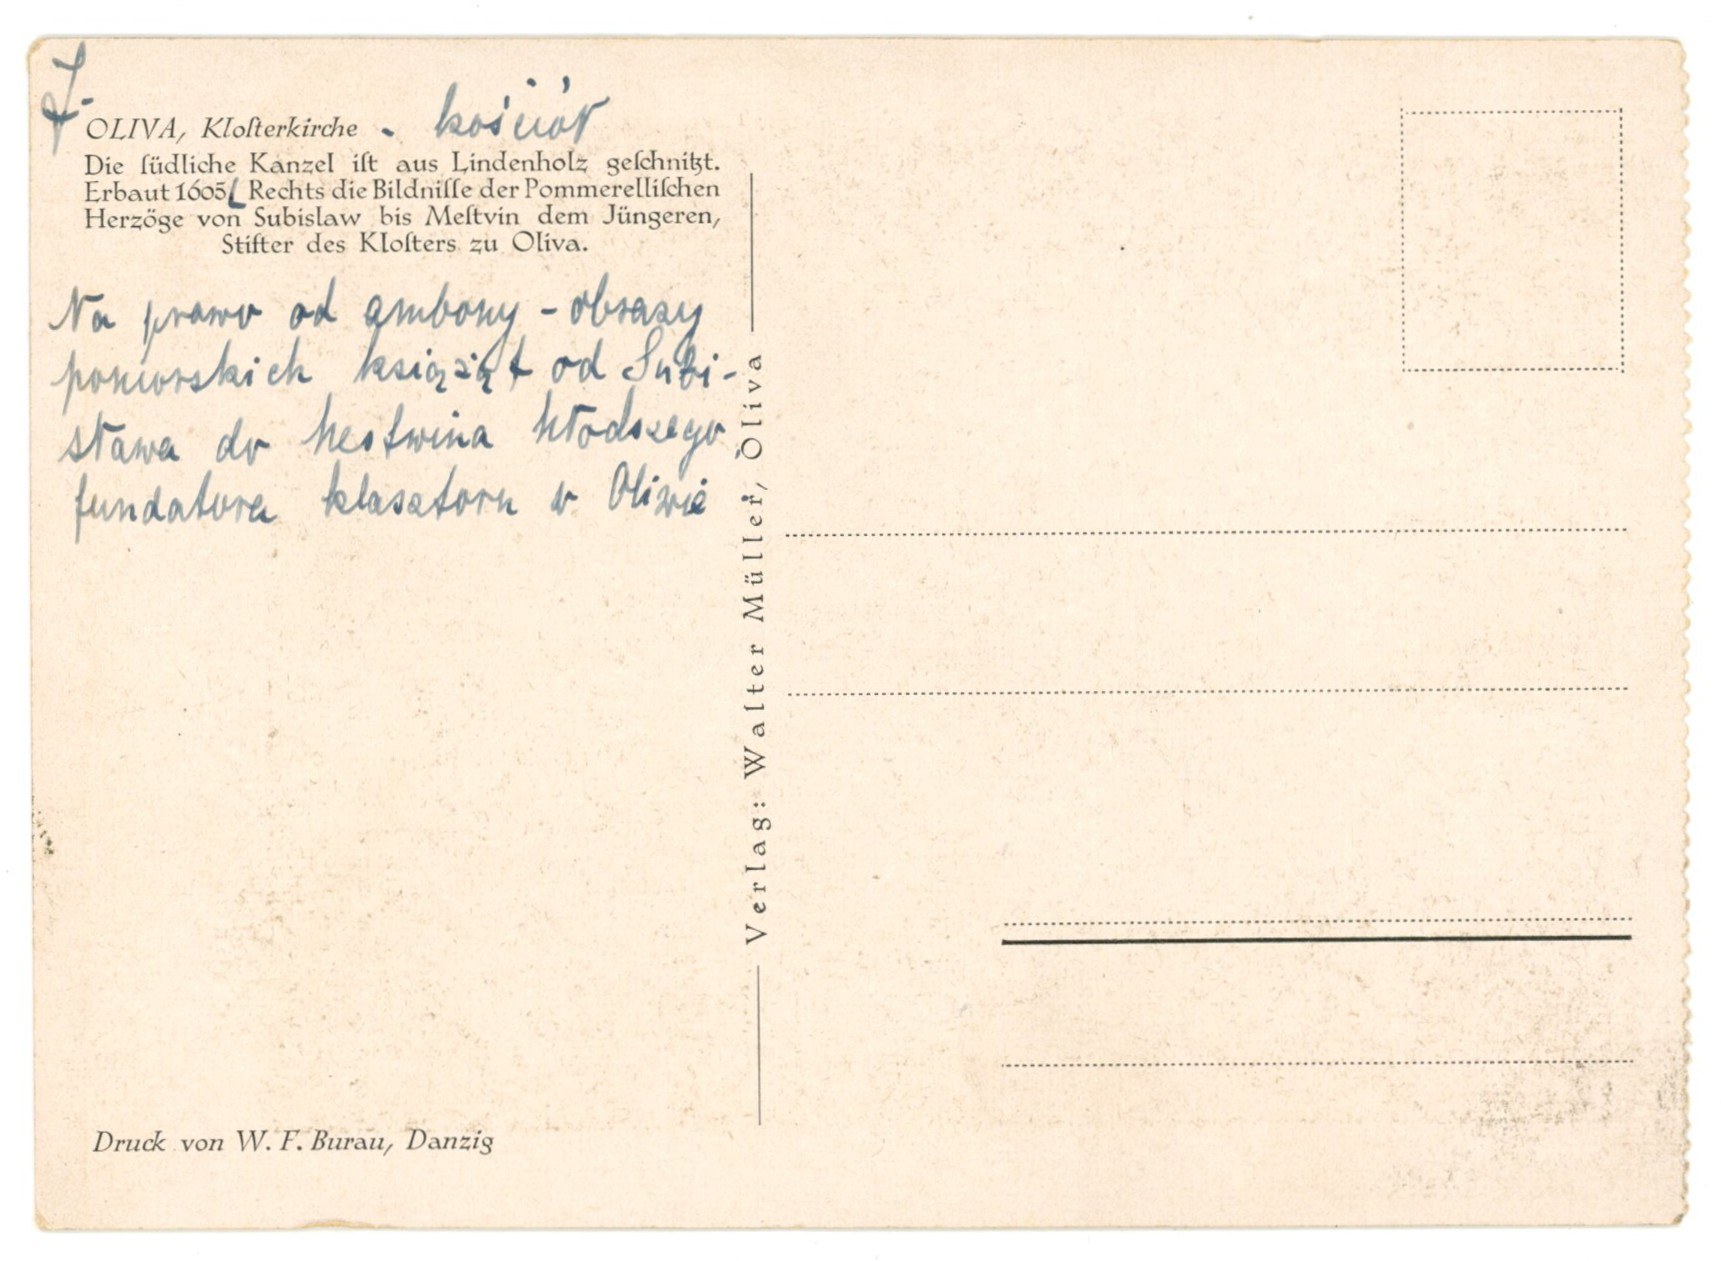 7.
OLIVA, Kloſterkirche - kościół
Die ſüdliche Kanzel iſt aus Lindenholz geſchnitzt.
Erbaut 1605. Rechts die Bildniſſe der Pommerelliſchen
Herzöge von Subislaw bis Meſtvin dem Jüngeren,
Stifter des Kloſters zu Oliva.
Na prawo od ambony - obrazy
pomorskich książąt od Subi-
sława do Mestwina Młodszego
fundatora klasztoru w Oliwie
Verlag: Walter Müller, Oliva
Druck von W. F. Burau, Danzig